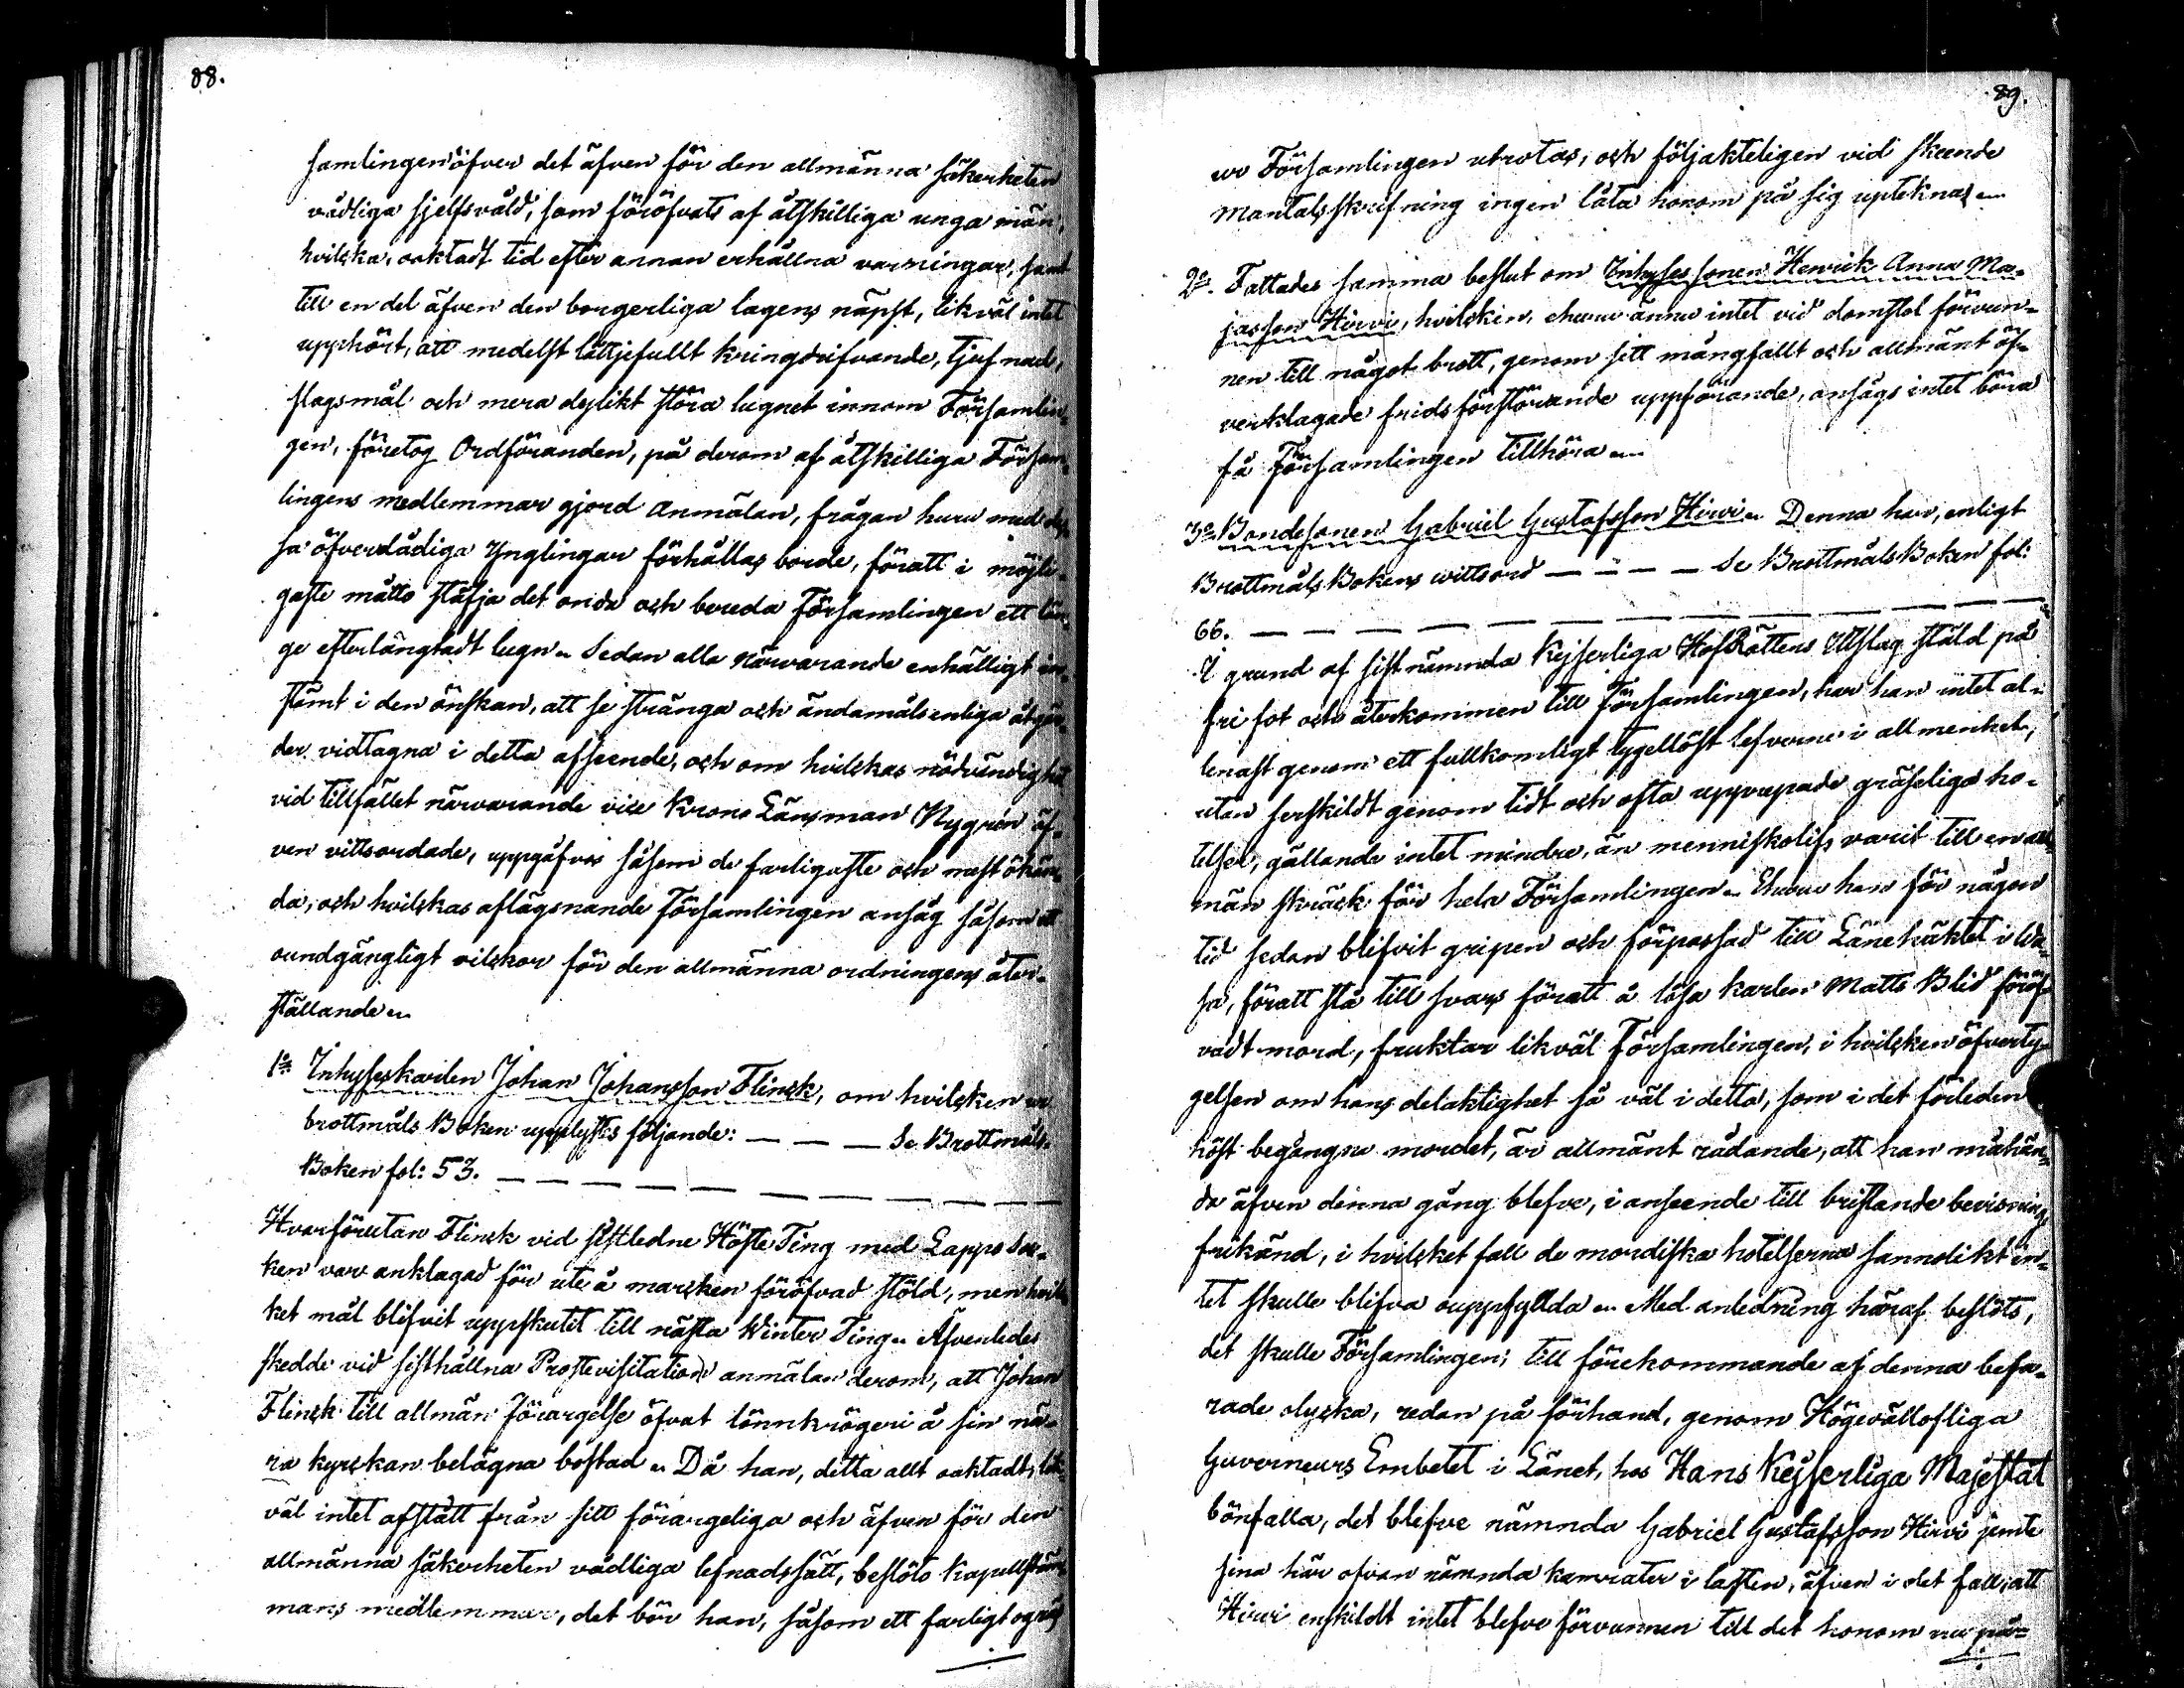 88.
samlingen öfver det äfven för den allmänna säkerheten
vådliga sjelfsvåld, som föröfvats af åtskilliga unga män,
hvilcka, oaktadt tid efter annan erhållna varningar, samt
till en del äfven den borgerliga lagens näpst, likväl intet
upphört, att medelst lättjefullt kringdrifvande, tjufnad,
slagsmål och mera dylikt störa lugnet innom Församlin-
gen, företog Ordföranden, på derom af åtskilliga Försam-
lingens medlemmar gjord anmälan, frågan huru med des-
sa öfverdådiga Ynglingar förhållas borde, föratt i möjli-
gaste måtto stäfja det onda och bereda Församlingen ett län-
ge efterlängtadt lugn. Sedan alla närvarande enhälligt in-
stämt i den önskan, att se stränga och ändamålsenliga åtgär-
der vidtagna i detta afseende, och om hvilckas nödvändighet
vid tillfället närvarande vice Krono Länsman Nygrén äf-
ven vittsordade, uppgåfvos såsom de farligaste och mest ökän-
da, och hvilckas aflägsnande Församlingen ansåg såsom ett
oundgängligt vilckor för den allmänna ordningens åter-
ställande
1o Inhyseskarlen Johan Johansson Flinck, om hvilcken ur
brottmåls Boken upplystes följande: — — — Se Brottmåls-
Boken fol: 53. — — — — — — — — —
Hvarförutan Flinck vid sistledne Höste Ting med Lappo Soc-
ken var anklagad för ute å marcken föröfvad stöld, men hvil-
ket mål blifvit uppskutet till nästa Winter Ting. Äfvenledes
skedde vid sisthållna Prostevisitation anmälan derom, att Johan
Flinck till allmän förargelse öfvat lönnkrögeri å sin nä-
ra kyrckan belägna bostad. Då han, detta allt oaktadt, lik-
väl intet afstått från sitt förargeliga och äfven för den
allmänna säkerheten vådliga lefnadssätt, beslöto Kapellstäm-
mans medlemmar, det bör han, såsom ett farligt ogräs
89.
ur Församlingen utrotas, och följakteligen vid skeende
mantalsskrifning ingen låta honom på sig uptecknas
2o. Fattades samma beslut om Inhyses sonen Henrick Anna Ma-
jasson Hirvi, hvilcken, ehuru ännu intet vid domstol förvun-
nen till något brott, genom sitt mångfallt och allmänt öf-
verklagade fridsförstörande uppförande, ansågs intet böra
få Församlingen tillhöra
3o Bondesonen Gabriel Gustafsson Hirvi. Denna har, enligt
BrottmålsBokens wittsord — — — — Se BrottmålsBoken fol:
66. — — — — — — — — — —
I grund af sistnämnda Kejserliga HofRättens Utslag stäld på
fri fot och återkommen till Församlingen, har han intet al-
lenast genom ett fullkomligt tygellöst lefverne i allmenhet,
utan serskildt genom tidt och ofta upprepade gräseliga ho-
telser, gällande intet mindre, än menniskolif, varit till en all-
män skräck för hela Församlingen. Ehuru han för någon
tid sedan blifvit gripen och förpassad till Länehäktet i Wa-
sa, föratt stå till svars föratt å lösa karlen Matts Blid föröf-
vadt mord, fruktar likväl Församlingen, i hvilcken öfverty-
gelsen om hans delaktighet så väl i detta, som i det förleden
höst begångna mordet, är allmänt rådande, att han måhän-
da äfven denna gång blefve, i anseende till bristande bevisning
frikänd, i hvilcket fall de mordiska hotelserna sannolikt in-
tet skulle blifva ouppfyllda. Med anledning häraf beslöts,
det skulle Församlingen, till förekommande af denna befa-
rade olycka, redan på förhand, genom Högvällofliga
Guverneurs Embetet i Länet, hos Hans Kejserliga Majestät
bönfalla, det blefve nämnda Gabriel Gustafsson Hirvi jemte
sina här ofvan nämnda kamrater i lasten, äfven i det fall, att
Hirvi enskildt intet blefve förvunnen till det honom nu på-